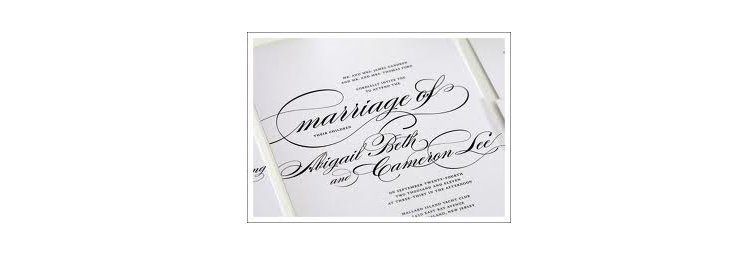 MR. AND MRS. JAMES
AND MR. AND MRS. THOMAS FORD
CORDIALLY INVITE YOU
TO ATTEND THE
marriage of
THEIR CHILDREN
Abigail Beth
and Cameron Lee
ON SEPTEMBER TWENTY-FOURTH
TWO THOUSAND AND ELEVEN
AT THREE-THIRTY IN THE AFTERNOON
ISLAND YACHT CLUB
EAST BAY AVENUE
ISLAND, NEW JERSEY
ng